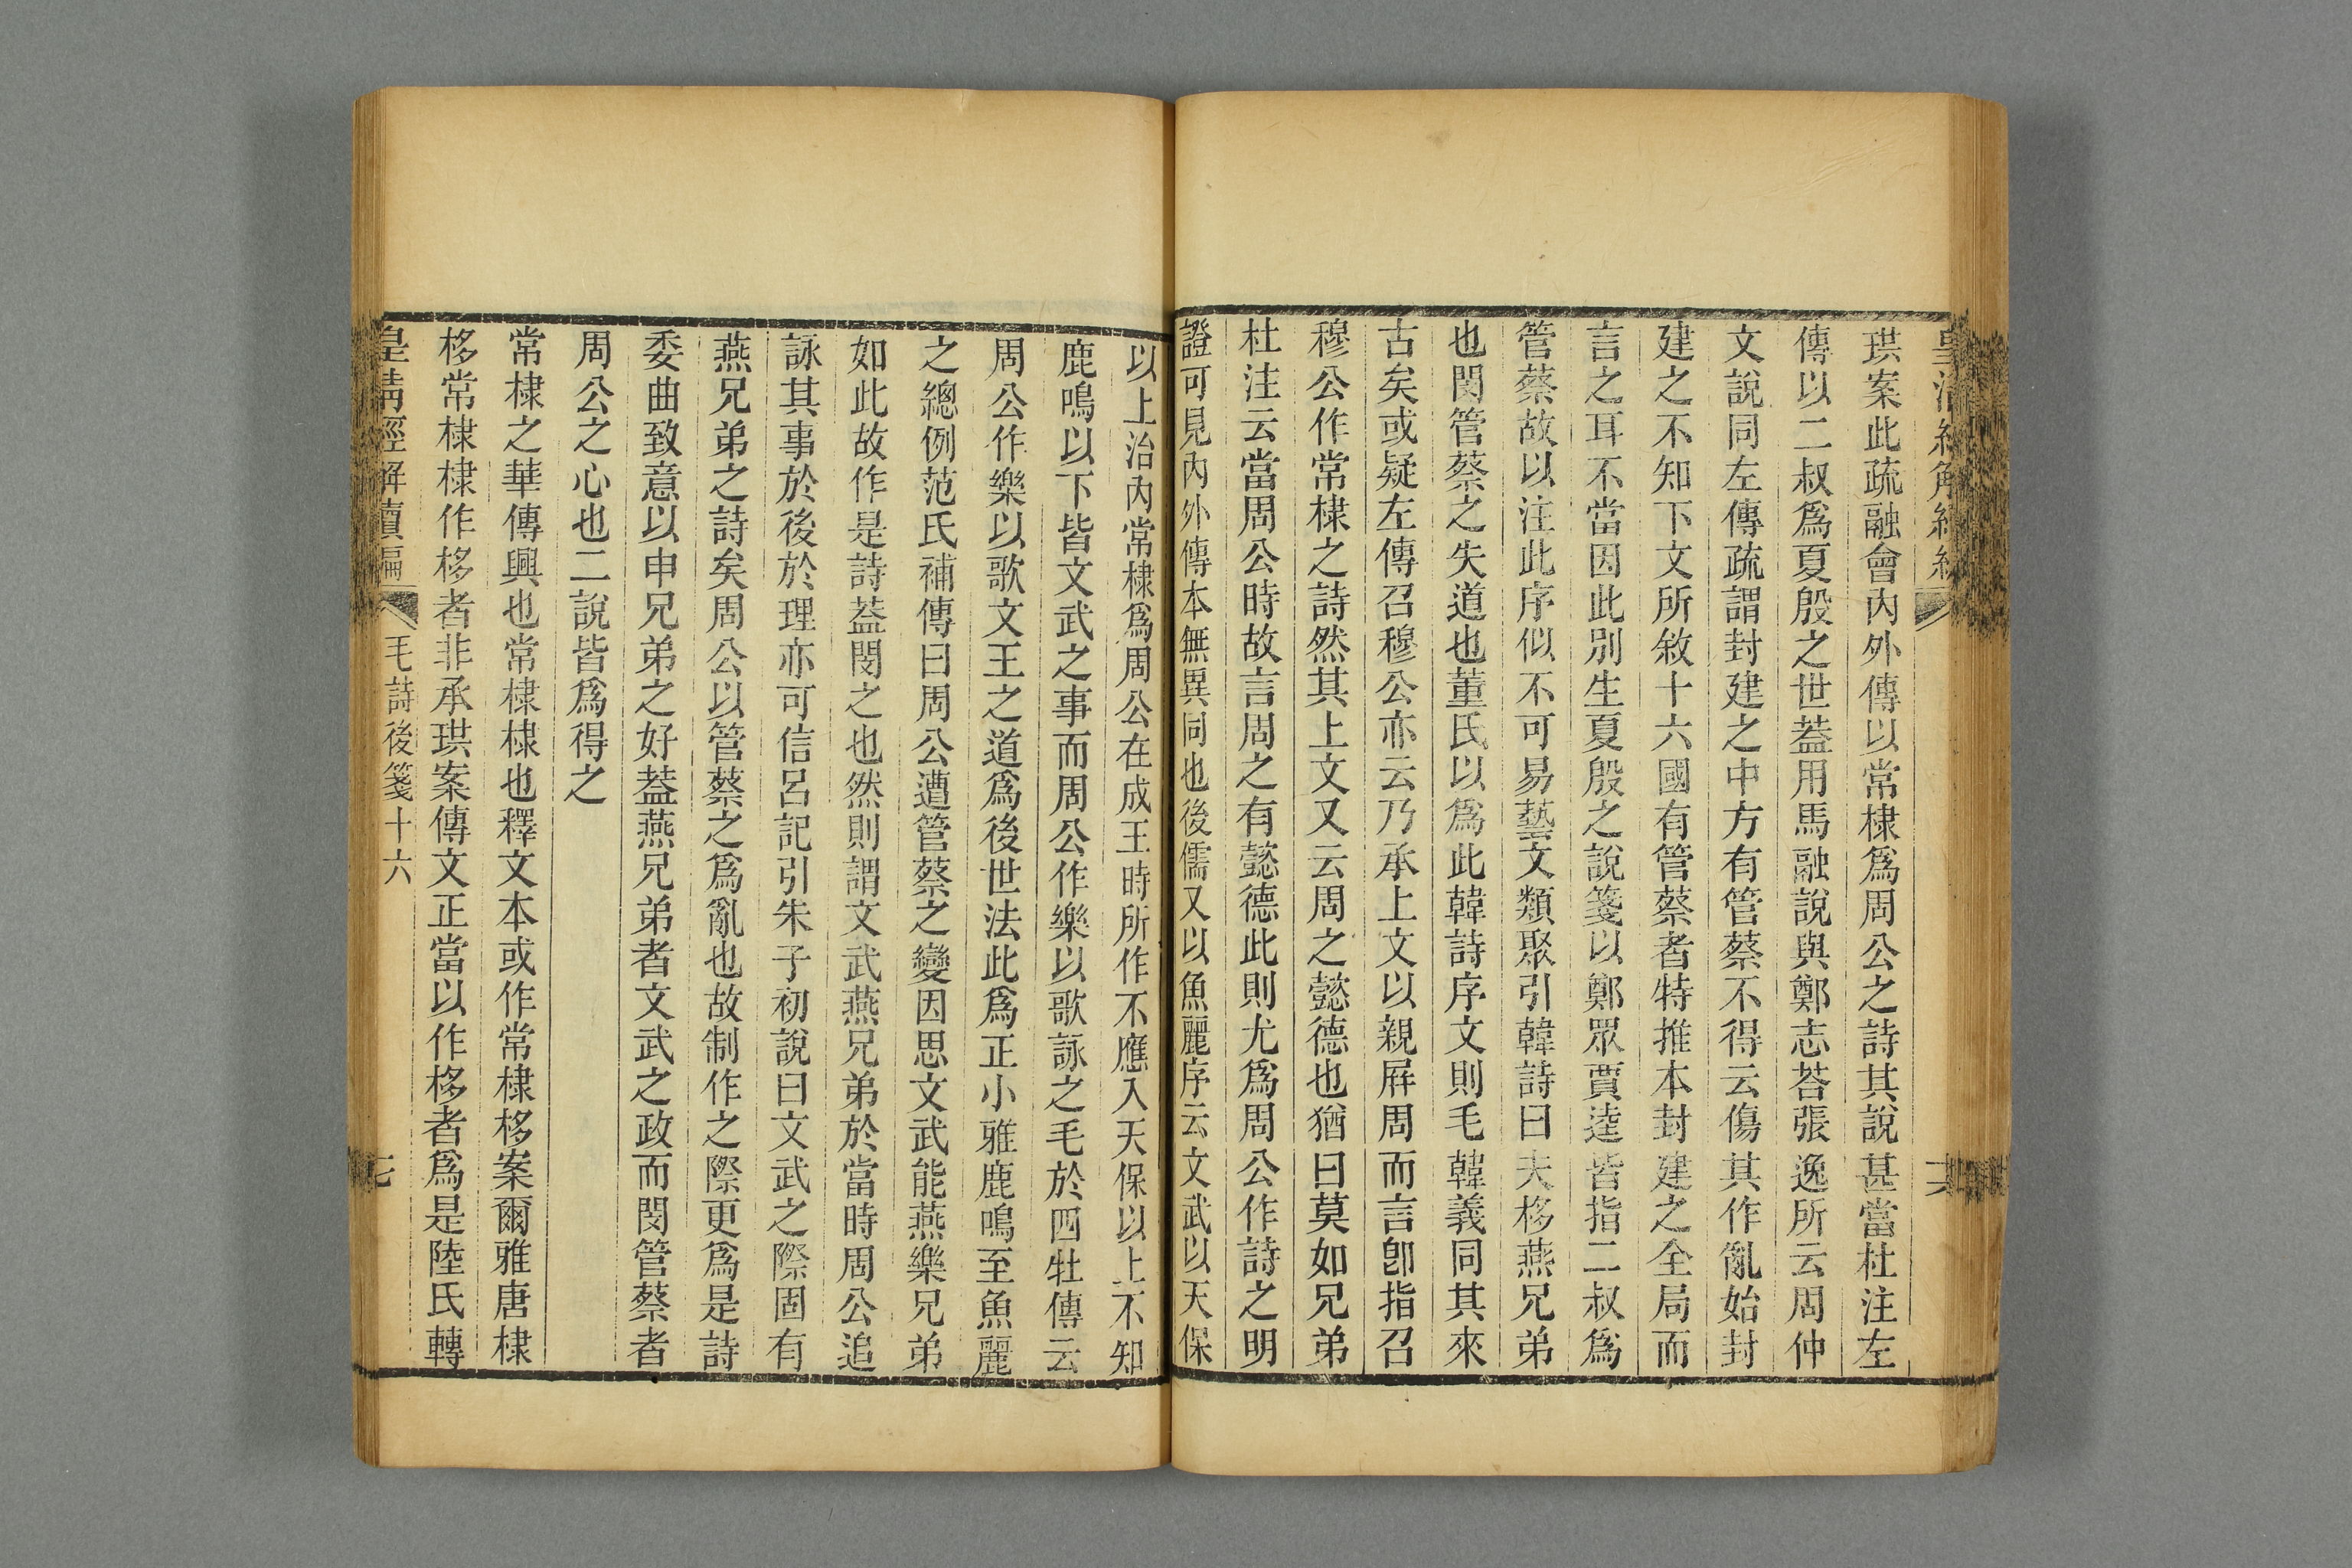 珙案此疏融會內外傳以常棣爲周公之詩其說甚當杜注左
傳以二叔爲夏殷之世葢用馬融說與鄭志荅張逸所云周仲
文說同左傳疏謂封建之中方有管蔡不得云傷其作亂始封
建之不知下文所敘十六國有管蔡者特推本封建之全局而
言之耳不當因此別生夏殷之說箋以鄭眾賈逵皆指二叔爲
管蔡故以注此序似不可易藝文類聚引韓詩曰夫栘燕兄弟
也閔管蔡之失道也董氏以爲此韓詩序文則毛韓義同其來
古矣或疑左傳召穆公亦云乃承上文以親屛周而言卽指召
穆公作常棣之詩然其上文又云周之懿德也猶曰莫如兄弟
杜注云當周公時故言周之有懿德此則尤爲周公作詩之明
證可見內外傳本無異同也後儒又以魚麗序云文武以天保
以上治內常棣爲周公在成王時所作不應入天保以上不知
鹿鳴以下皆文武之事而周公作樂以歌詠之毛於四牡傳云
周公作樂以歌文王之道爲後世法此爲正小雅鹿鳴至魚麗
之總例范氏補傳曰周公遭管蔡之變因思文武能燕樂兄弟
如此故作是詩葢閔之也然則謂文武燕兄弟於當時周公追
詠其事於後於理亦可信呂記引朱子初說曰文武之際固有
燕兄弟之詩矣周公以管蔡之爲亂也故制作之際更爲是詩
委曲致意以申兄弟之好葢燕兄弟者文武之政而閔管蔡者
周公之心也二說皆爲得之
常棣之華傳興也常棣棣也釋文本或作常棣栘案爾雅唐棣
栘常棣棣作栘者非承珙案傳文正當以作栘者爲是陸氏轉
皇清經解續編 毛詩後箋十六